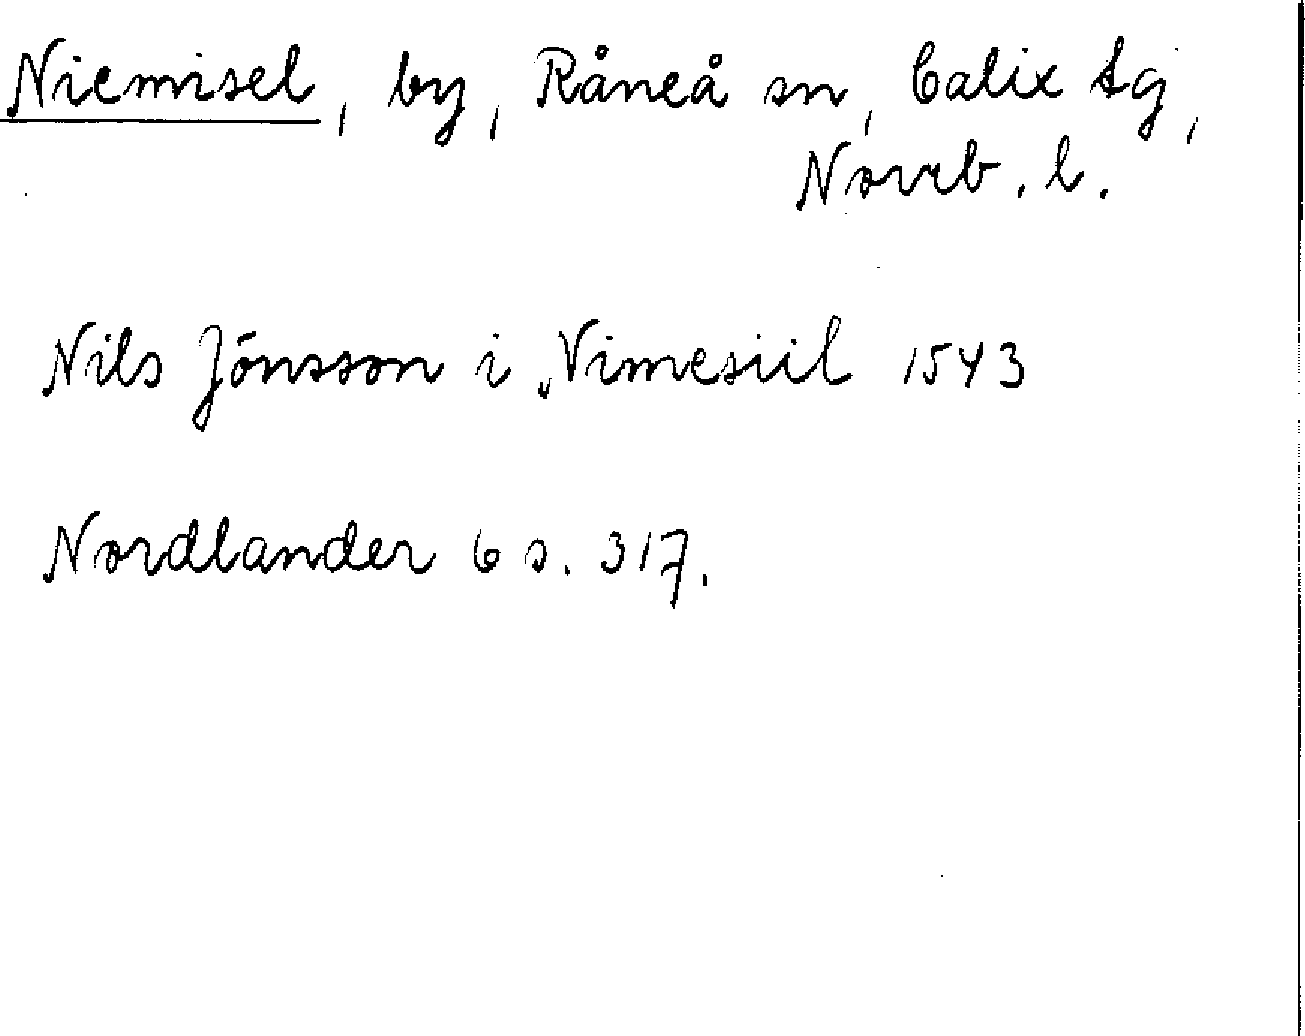 Niemisel, by, Råneå sn, Calix tg,
Norrb. l.
Nils Jönsson i Nimesiil 1543
Nordlander 6 s. 317.